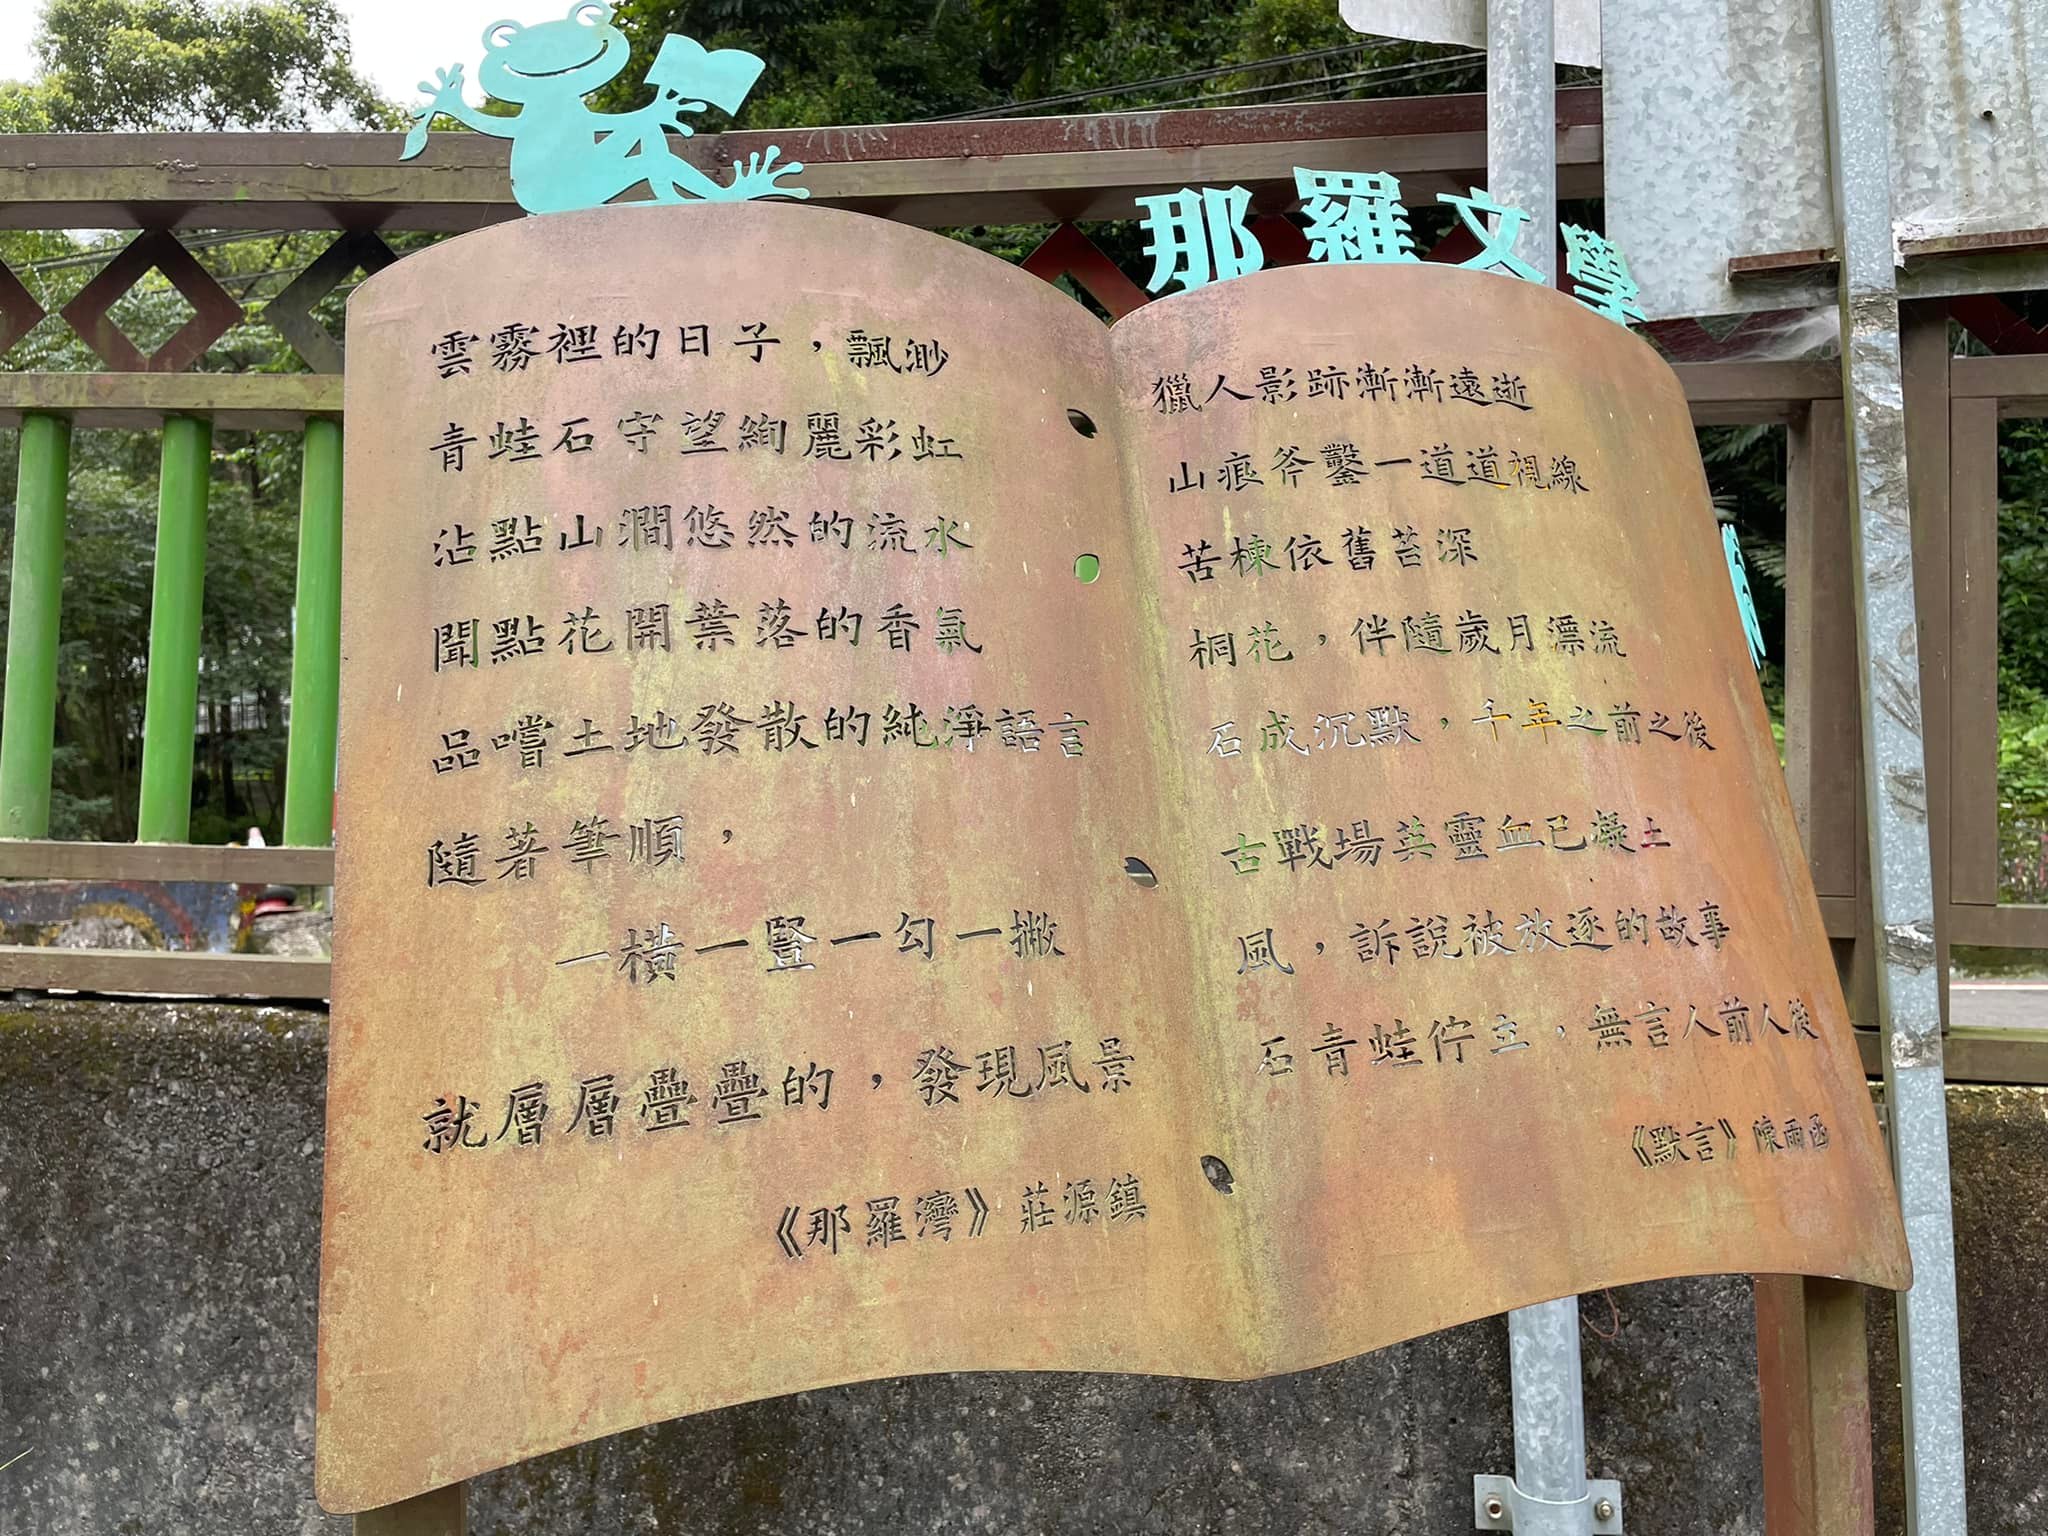 那羅文學
雲霧裡的日子，飄渺
青蛙石守望絢麗彩虹
沾點山澗悠然的流水
聞點花開葉落的香氣
品嚐土地發散的純淨語言
隨著筆順，
一橫一豎一勾一撇
就層層疊疊的，發現風景
《那羅灣》莊源鎮
獵人影跡漸漸遠逝
山痕斧鑿一道道視線
苦楝依舊苔深
桐花，伴隨歲月漂流
石成沉默，千年之前之後
古戰場英靈血已凝土
風，訴說被放逐的故事
石青蛙佇立，無言人前人後
《默言》陳雨函